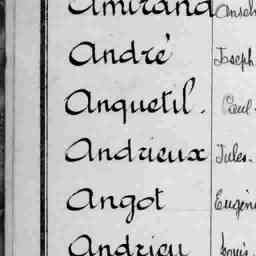 Amirand Ansel
André Joseph
Anquetil. Paul.
Andrieux Jules.
Angot Eugène
Andrieu Louis